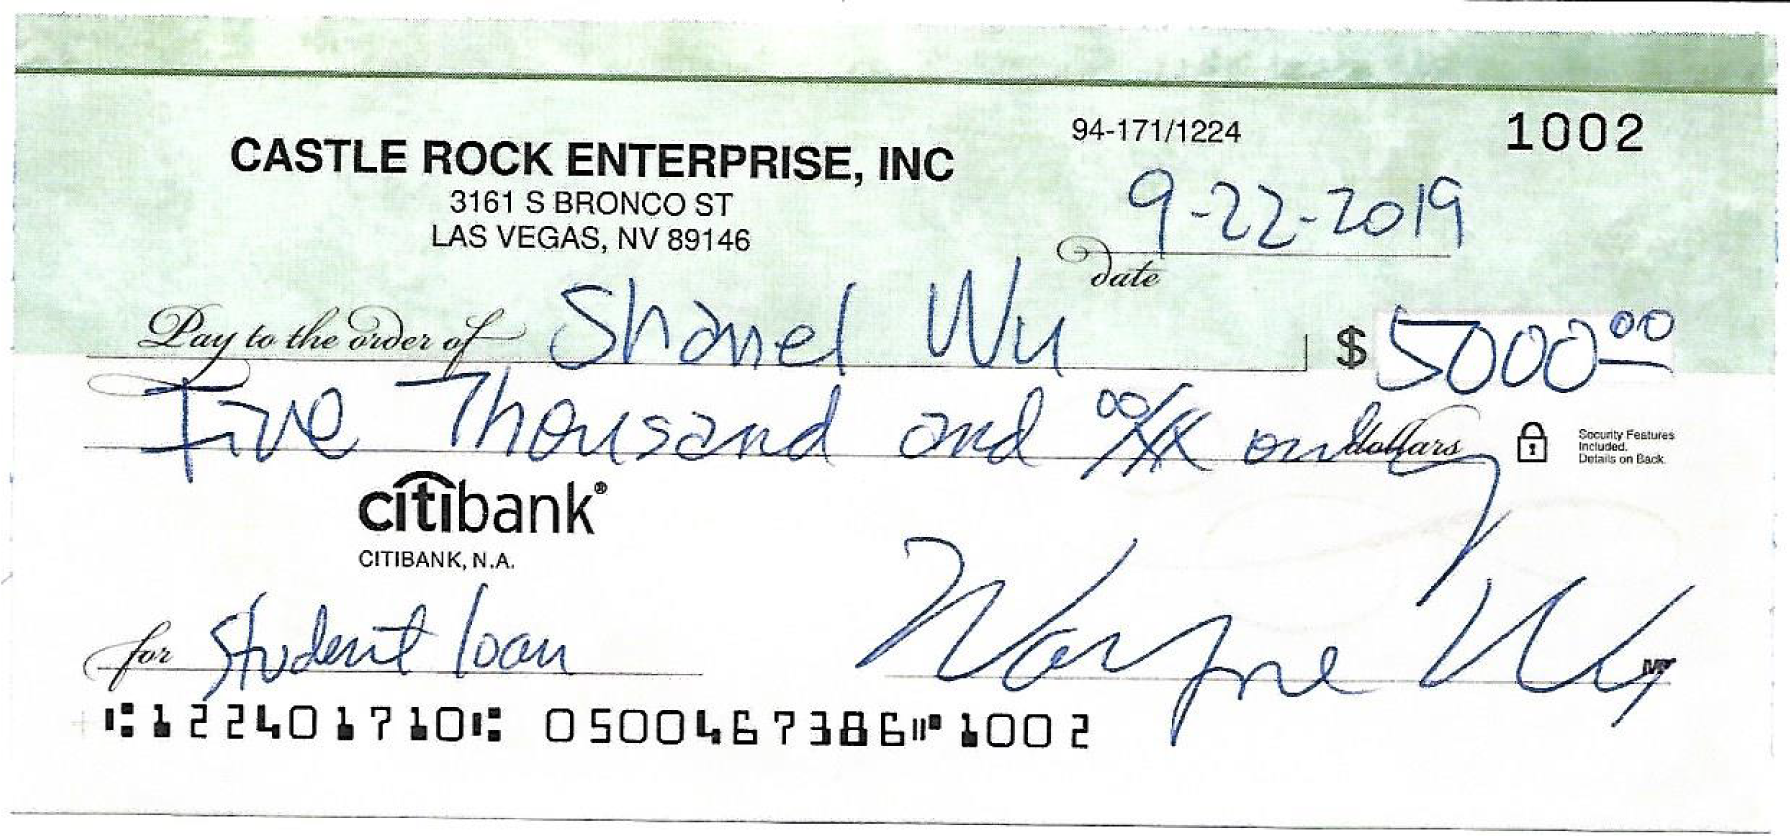 CASTLE ROCK ENTERPRISE, INC
3161 S BRONCO ST
LAS VEGAS, NV 89146
94-171/1224
1002
9-22-2019
date
Pay to the order of Shanel Wu $ 5000 00
Five Thousand and 00/xx only dollars
Security Features
Included.
Details on Back.
citibank®
CITIBANK, N.A.
for Student loan
Wayne Wu
MP
⑆122401710⑆ 0500467386⑈1002